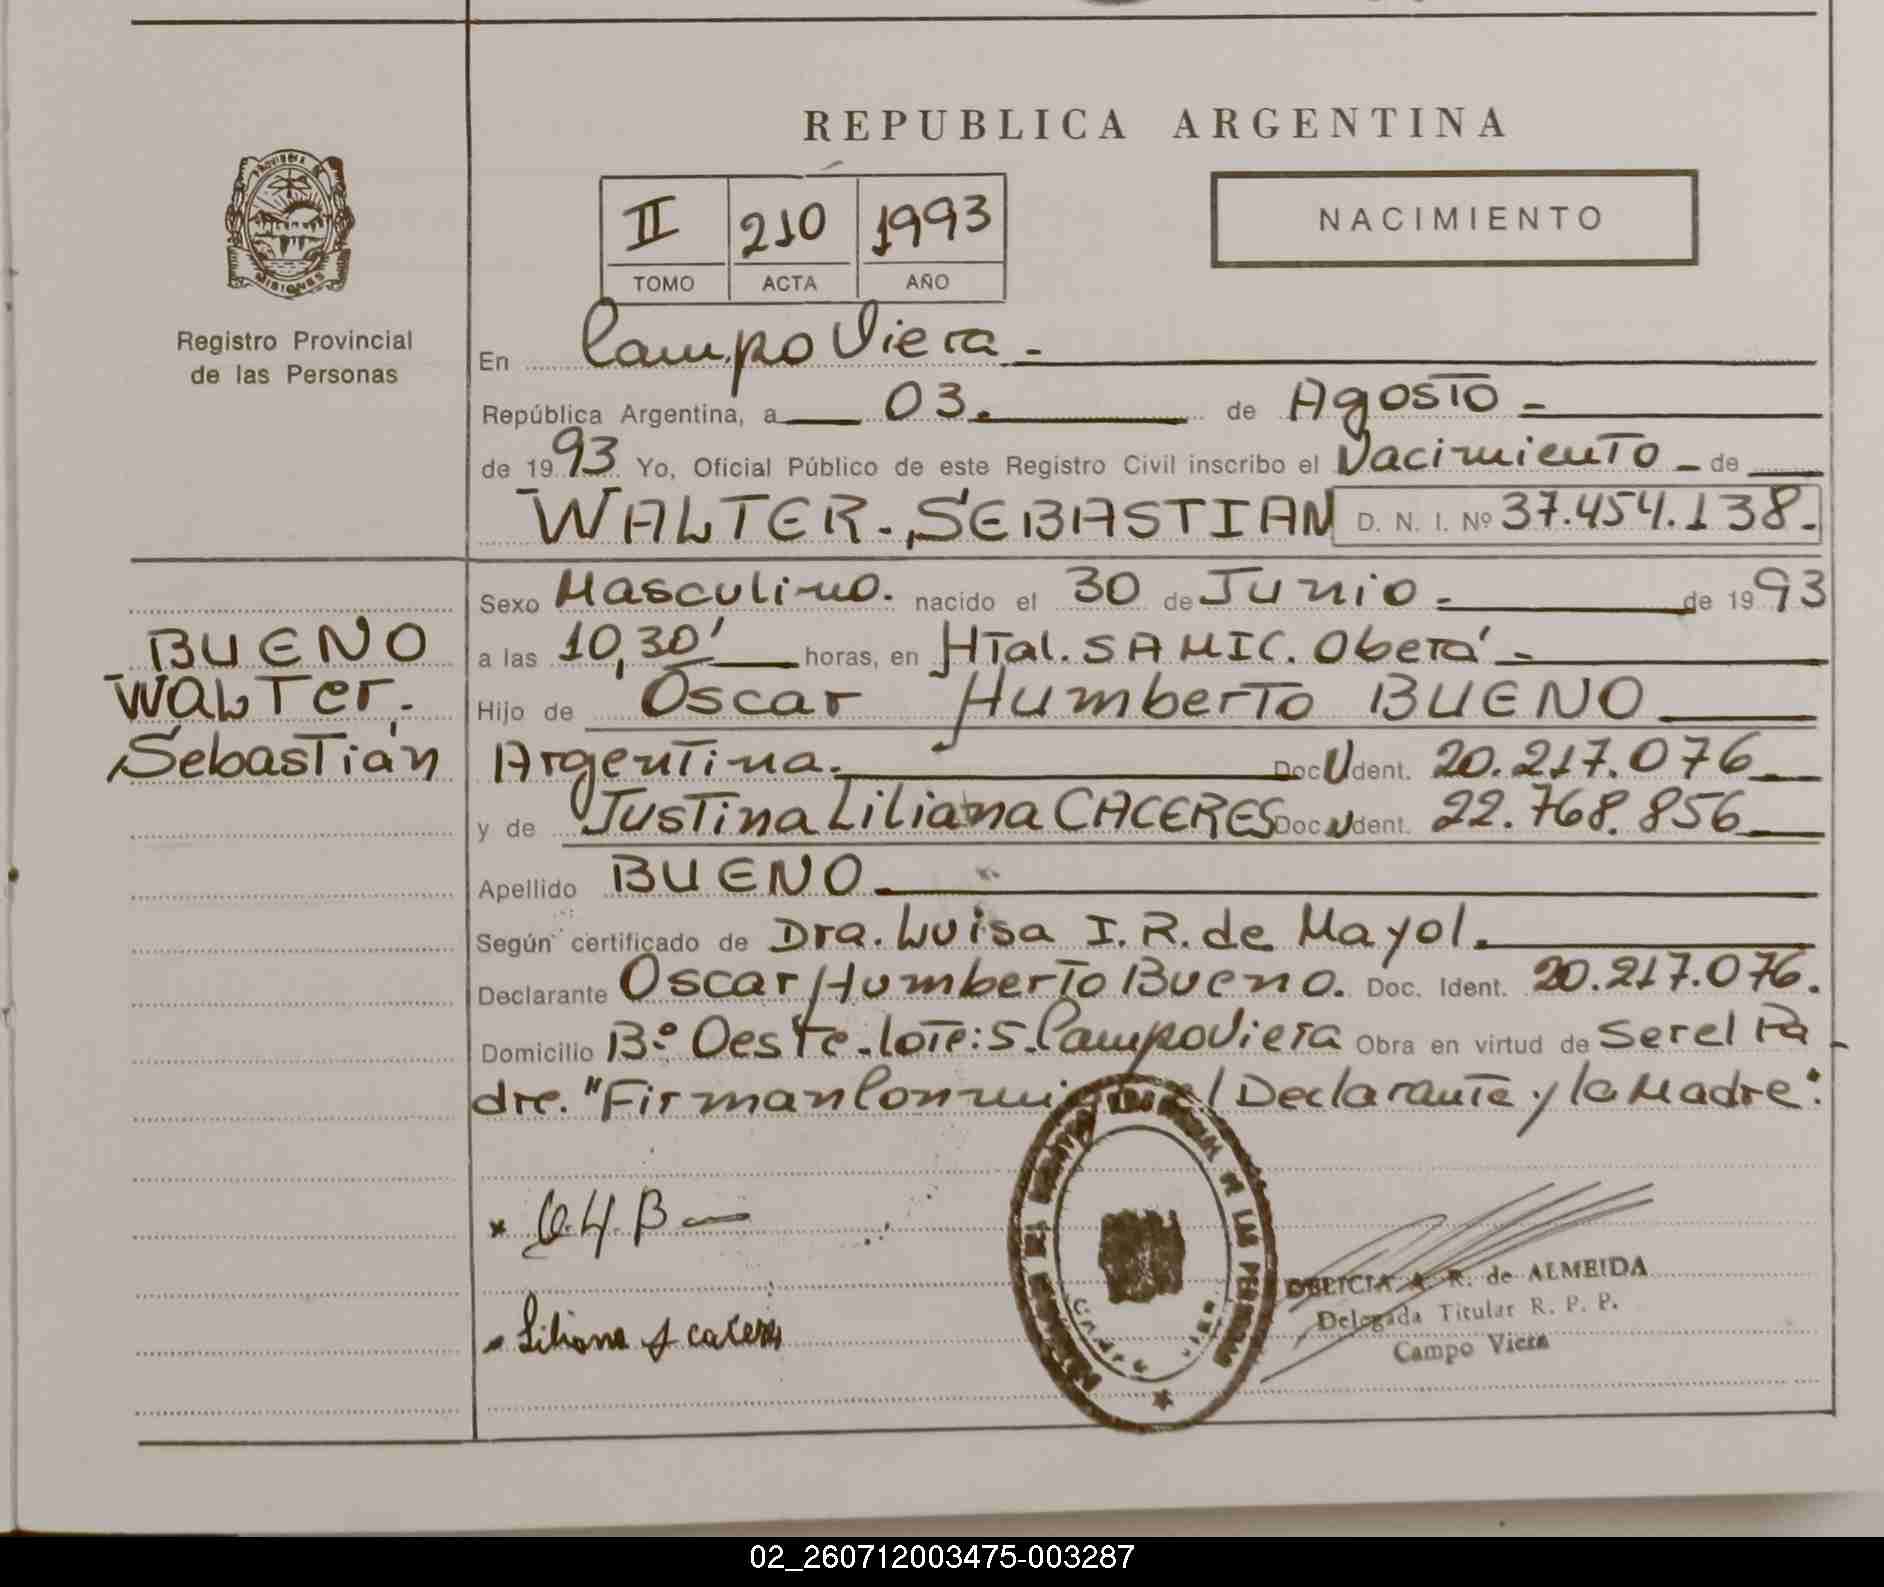 REPUBLICA ARGENTINA
PROVINCIA DE MISIONES
Registro Provincial
de las Personas
II 210 1993
TOMO ACTA AÑO
NACIMIENTO
En Campo Viera -
República Argentina, a 03. de Agosto -
de 1993 Yo, Oficial Público de este Registro Civil inscribo el Nacimiento - de
WALTER. SEBASTIAN D. N. I. Nº 37.454.138.
BUENO
Walter.
Sebastián
Sexo Masculino. nacido el 30 de Junio. de 1993
a las 10,30' horas, en HTal. SAMIC. Oberá -
Hijo de Oscar Humberto BUENO
Argentina. Doc U Ident. 20.217.076
y de Justina Liliana CACERES Doc U Ident. 22.768.856
Apellido BUENO
Según certificado de Dra. Luisa I. R. de Mayol.
Declarante Oscar Humberto Bueno. Doc. Ident. 20.217.076.
Domicilio Bº Oeste. lote: 5. Campo Viera Obra en virtud de Ser el Pa-
dre. "Firman Conmigo el Declarante y la Madre".
O.H.B
Liliana J caceres
DELICIA A. R. de ALMEIDA
Delegada Titular R. P. P.
Campo Viera
02_260712003475-003287